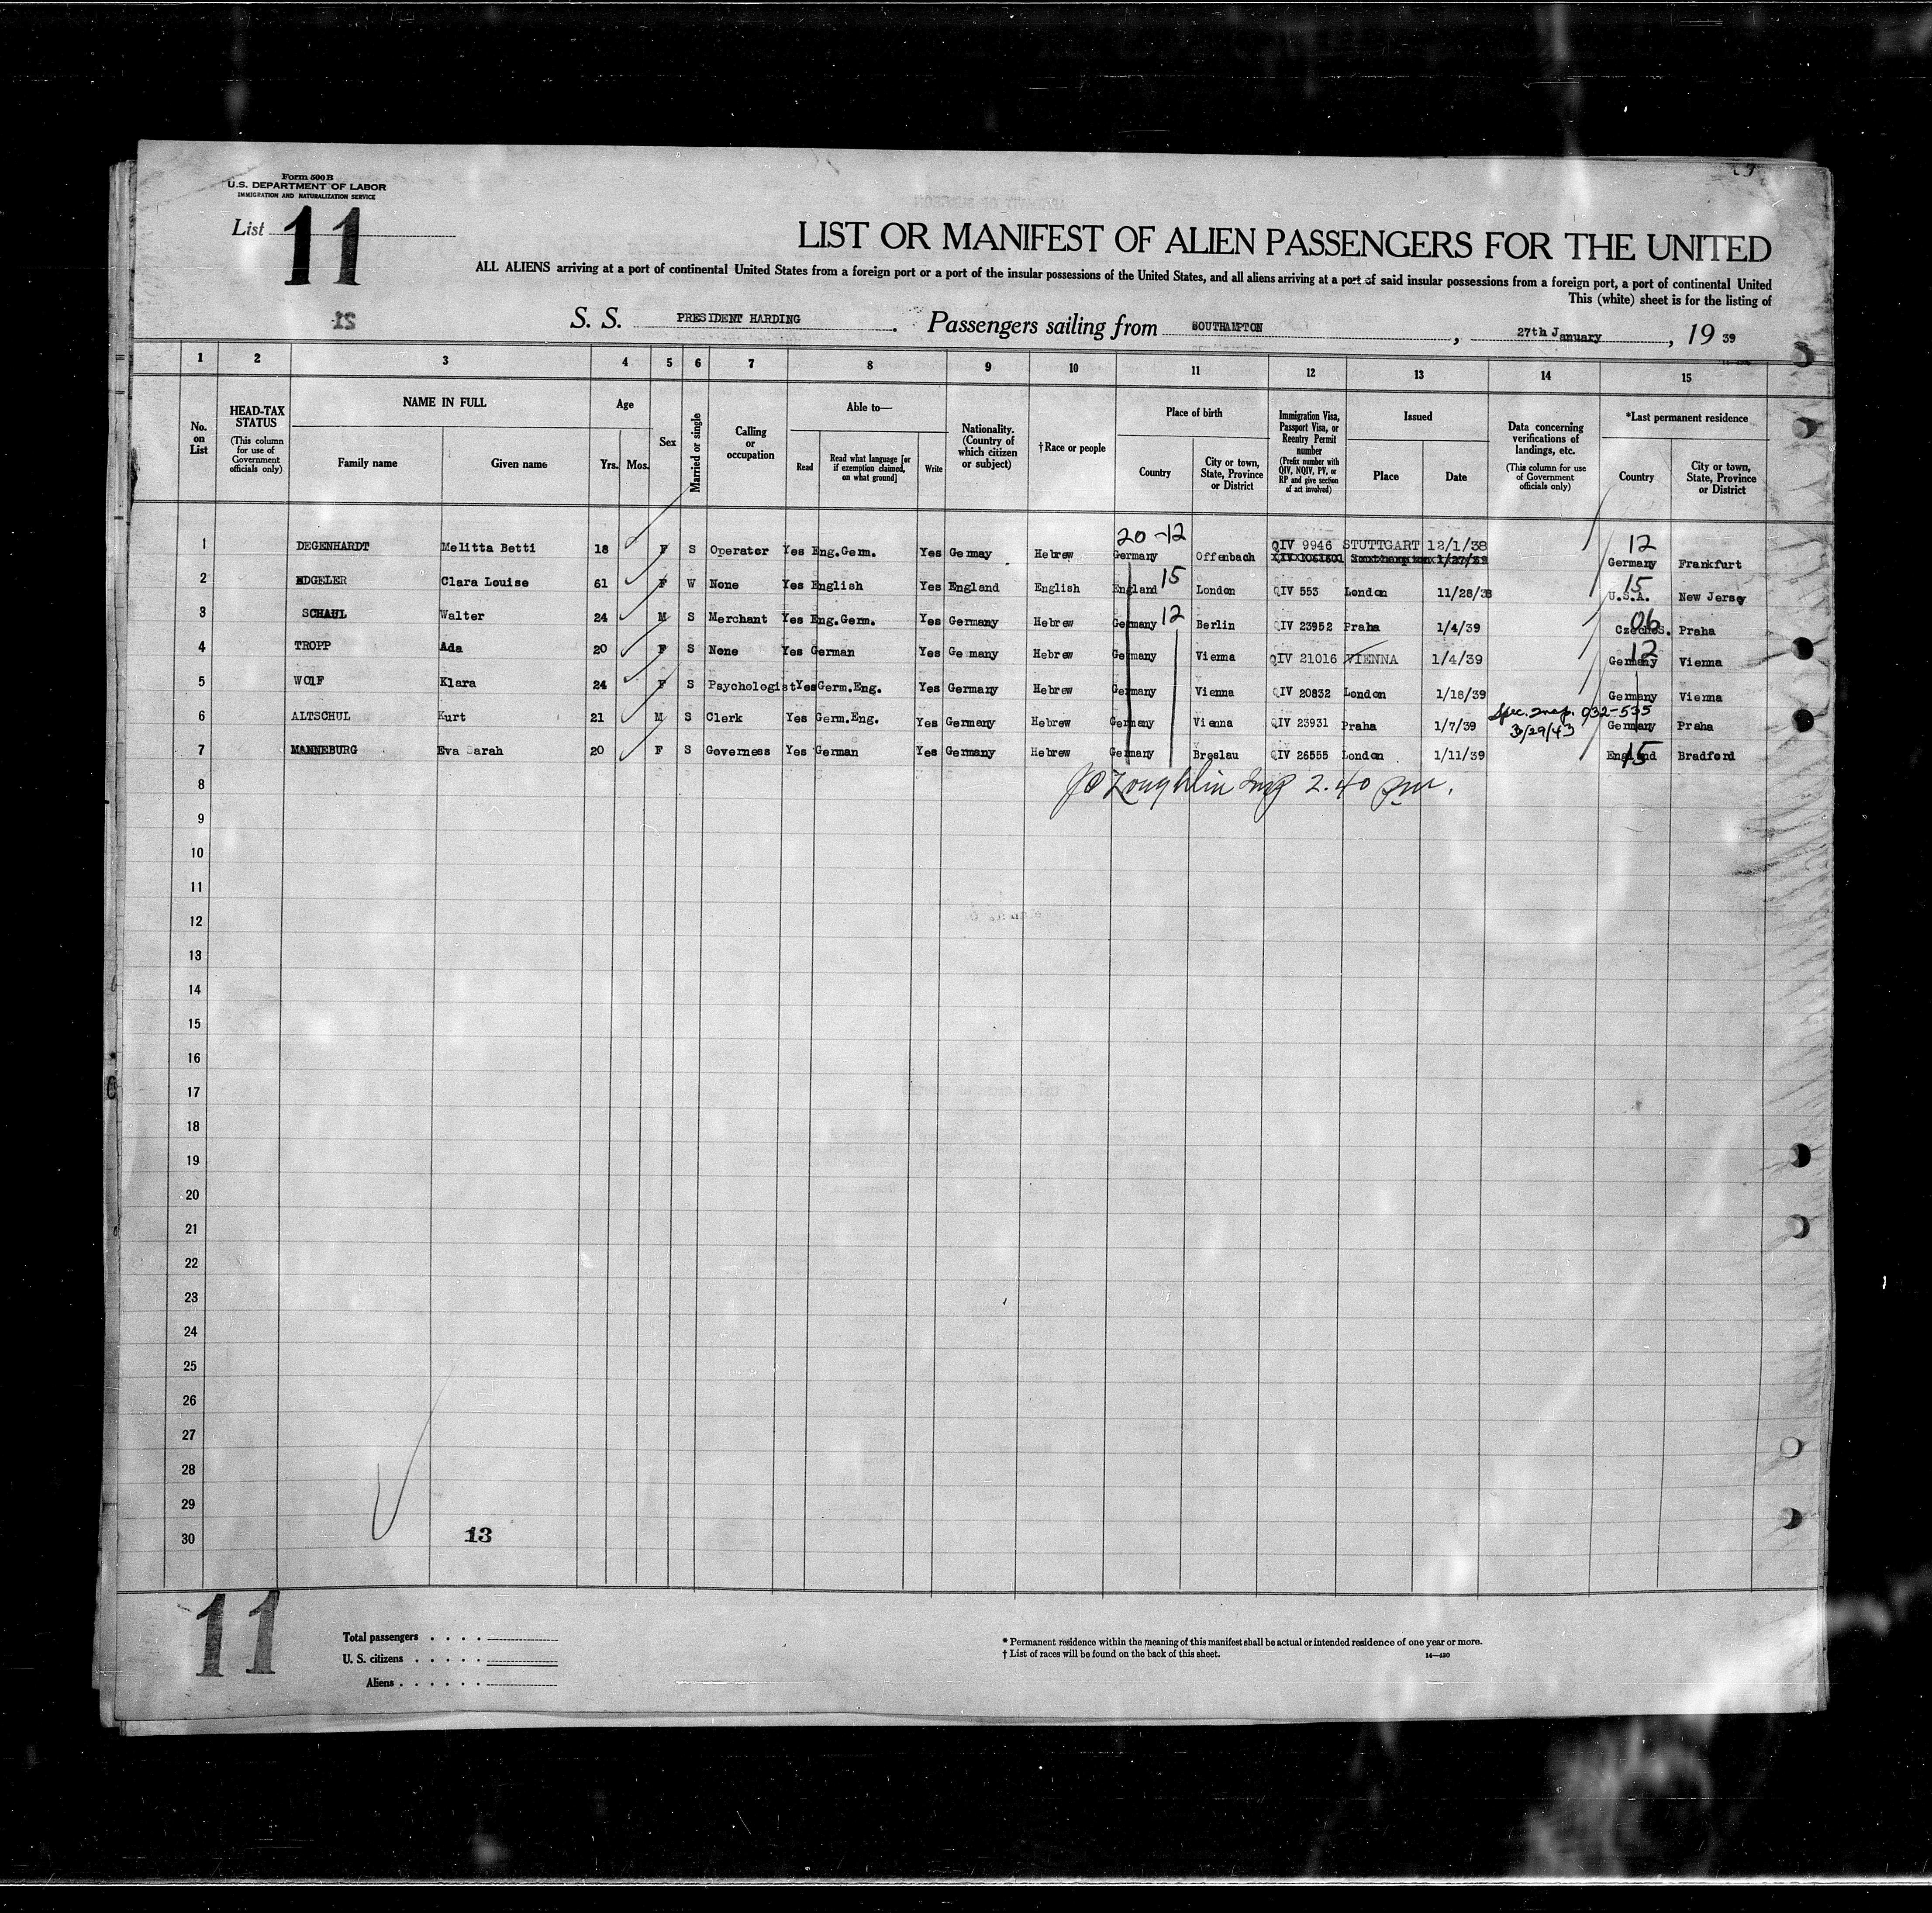 Form 500 B
U.S. DEPARTMENT OF LABOR
IMMIGRATION AND NATURALIZATION SERVICE
List 11
LIST OR MANIFEST OF ALIEN PASSENGERS FOR THE UNITED
ALL ALIENS arriving at a port of continental United States from a foreign port or a port of the insular possessions of the United States, and all aliens arriving at a port of said insular possessions from a foreign port, a port of continental United
This (white) sheet is for the listing of
S. S. PRESIDENT HARDING. Passengers sailing from SOUTHAMPTON, 27th January, 19 39
1 2 3 4 5 6 7 8 9 10 11 12 13 14 15
No. on List
HEAD-TAX STATUS (This column for use of Government officials only)
NAME IN FULL Family name Given name
Age Yrs. Mos.
Sex
Married or single
Calling or occupation
Able to— Read Read what language [or if exemption claimed, on what ground] Write
Nationality. (Country of which citizen or subject)
†Race or people
Place of birth Country City or town, State, Province or District
Immigration Visa, Passport Visa, or Reentry Permit number (Prefix number with QIV, NQIV, PV, or RP and give section of act involved)
Issued Place Date
Data concerning verifications of landings, etc. (This column for use of Government officials only)
*Last permanent residence Country City or town, State, Province or District
20-12
1 DEGENHARDT Melitta Betti 18 F S Operator Yes Eng.Germ. Yes Germay Hebrew Germany Offenbach QIV 9946 STUTTGART 12/1/38 12 Germany Frankfurt
2 EDGELER Clara Louise 61 F W None Yes English Yes England English England 15 London QIV 553 London 11/28/38 15 U.S.A. New Jersey
3 SCHAUL Walter 24 M S Merchant Yes Eng.Germ. Yes Germany Hebrew Germany 12 Berlin QIV 23952 Praha 1/4/39 06 Czechos. Praha
4 TROPP Ada 20 F S None Yes German Yes Ge many Hebrew Germany Vienna QIV 21016 VIENNA 1/4/39 12 Germany Vienna
5 WOLF Klara 24 F S Psychologist Yes Germ.Eng. Yes Germany Hebrew Germany Vienna QIV 20832 London 1/18/39 Germany Vienna
6 ALTSCHUL Kurt 21 M S Clerk Yes Germ.Eng. Yes Germany Hebrew Germany Vienna QIV 23931 Praha 1/7/39 Spec. 032-535 3/29/43 Germany Praha
7 MANNEBURG Eva Sarah 20 F S Governess Yes German Yes Germany Hebrew Germany Breslau QIV 26555 London 1/11/39 England 15 Bradford
8 2.40 pm.
9
10
11
12
13
14
15
16
17
18
19
20
21
22
23
24
25
26
27
28
29
30
13
11
Total passengers
U. S. citizens
Aliens
* Permanent residence within the meaning of this manifest shall be actual or intended residence of one year or more.
† List of races will be found on the back of this sheet.
14—430